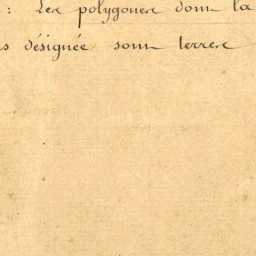 : Les polygones dont la
s désignée sont terres